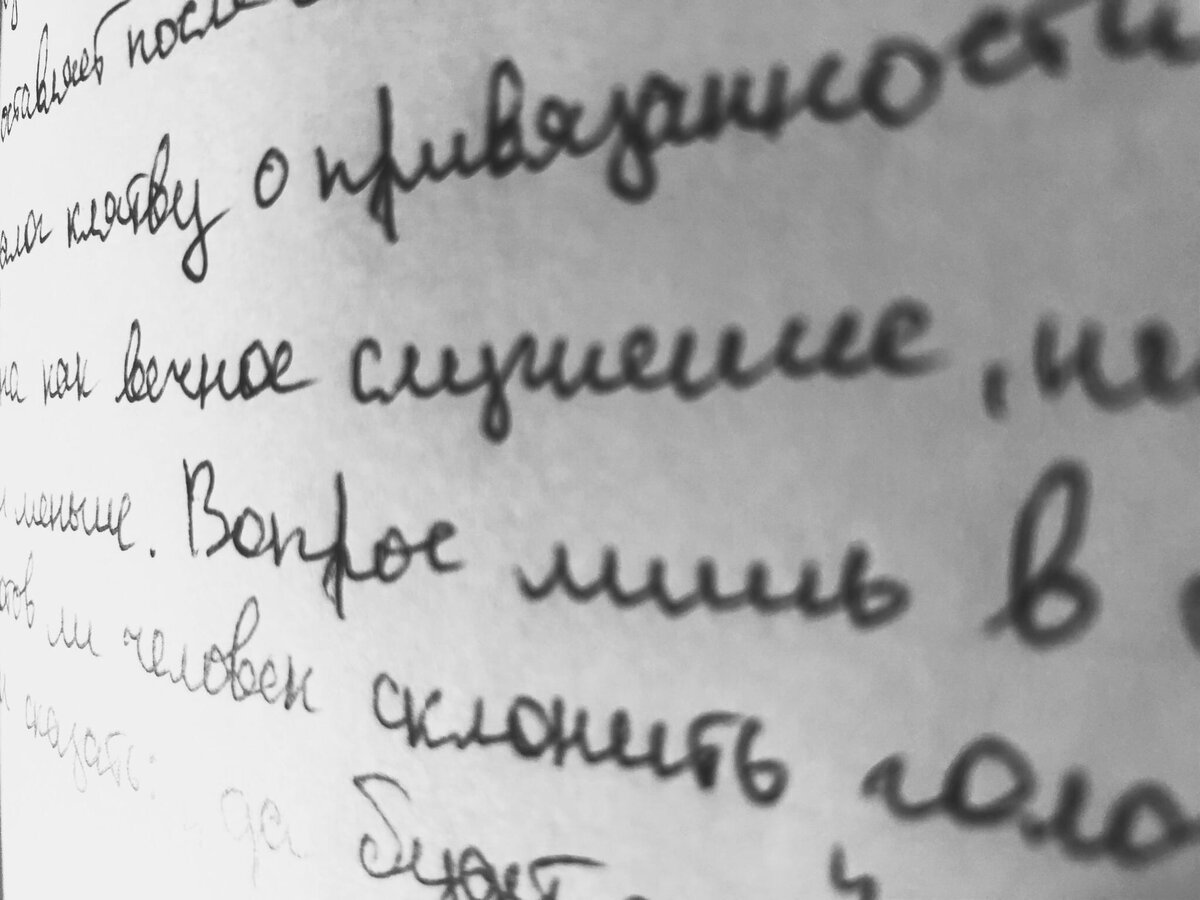 оставляет после
клятву о привязанности
на как вечное служение, не
меньше. Вопрос лишь в
ли человек склонить голо
сказать: да будет